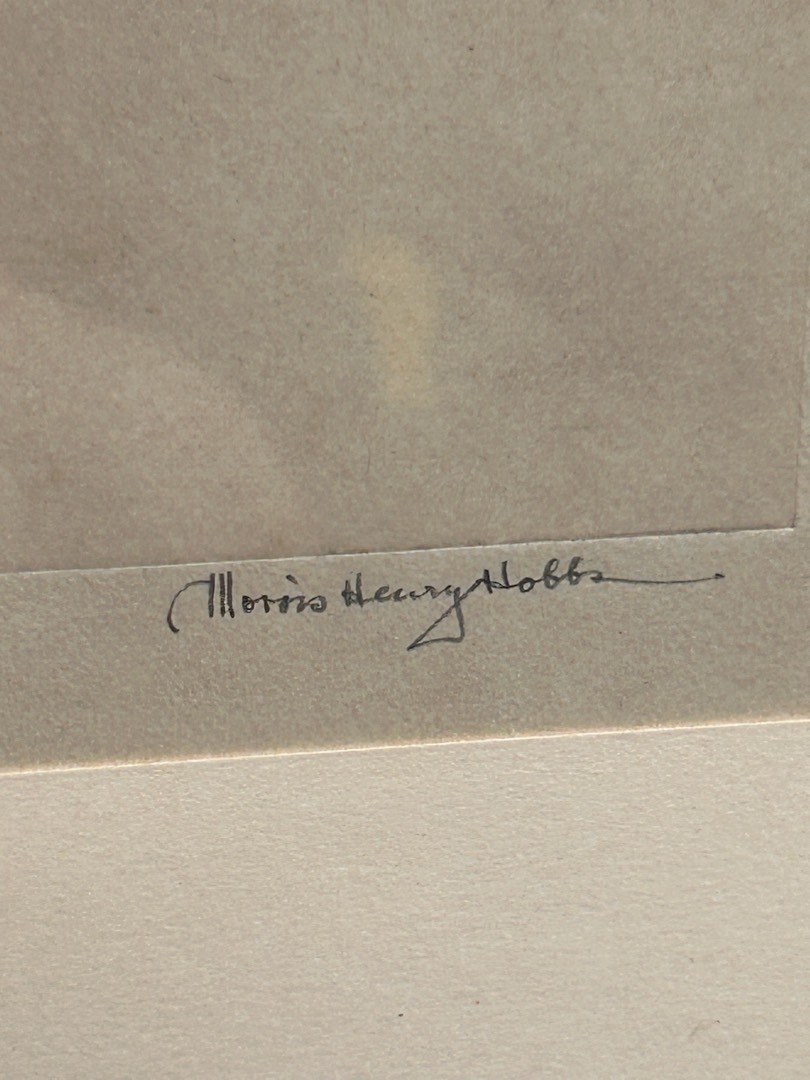 Morris Henry Hobbs